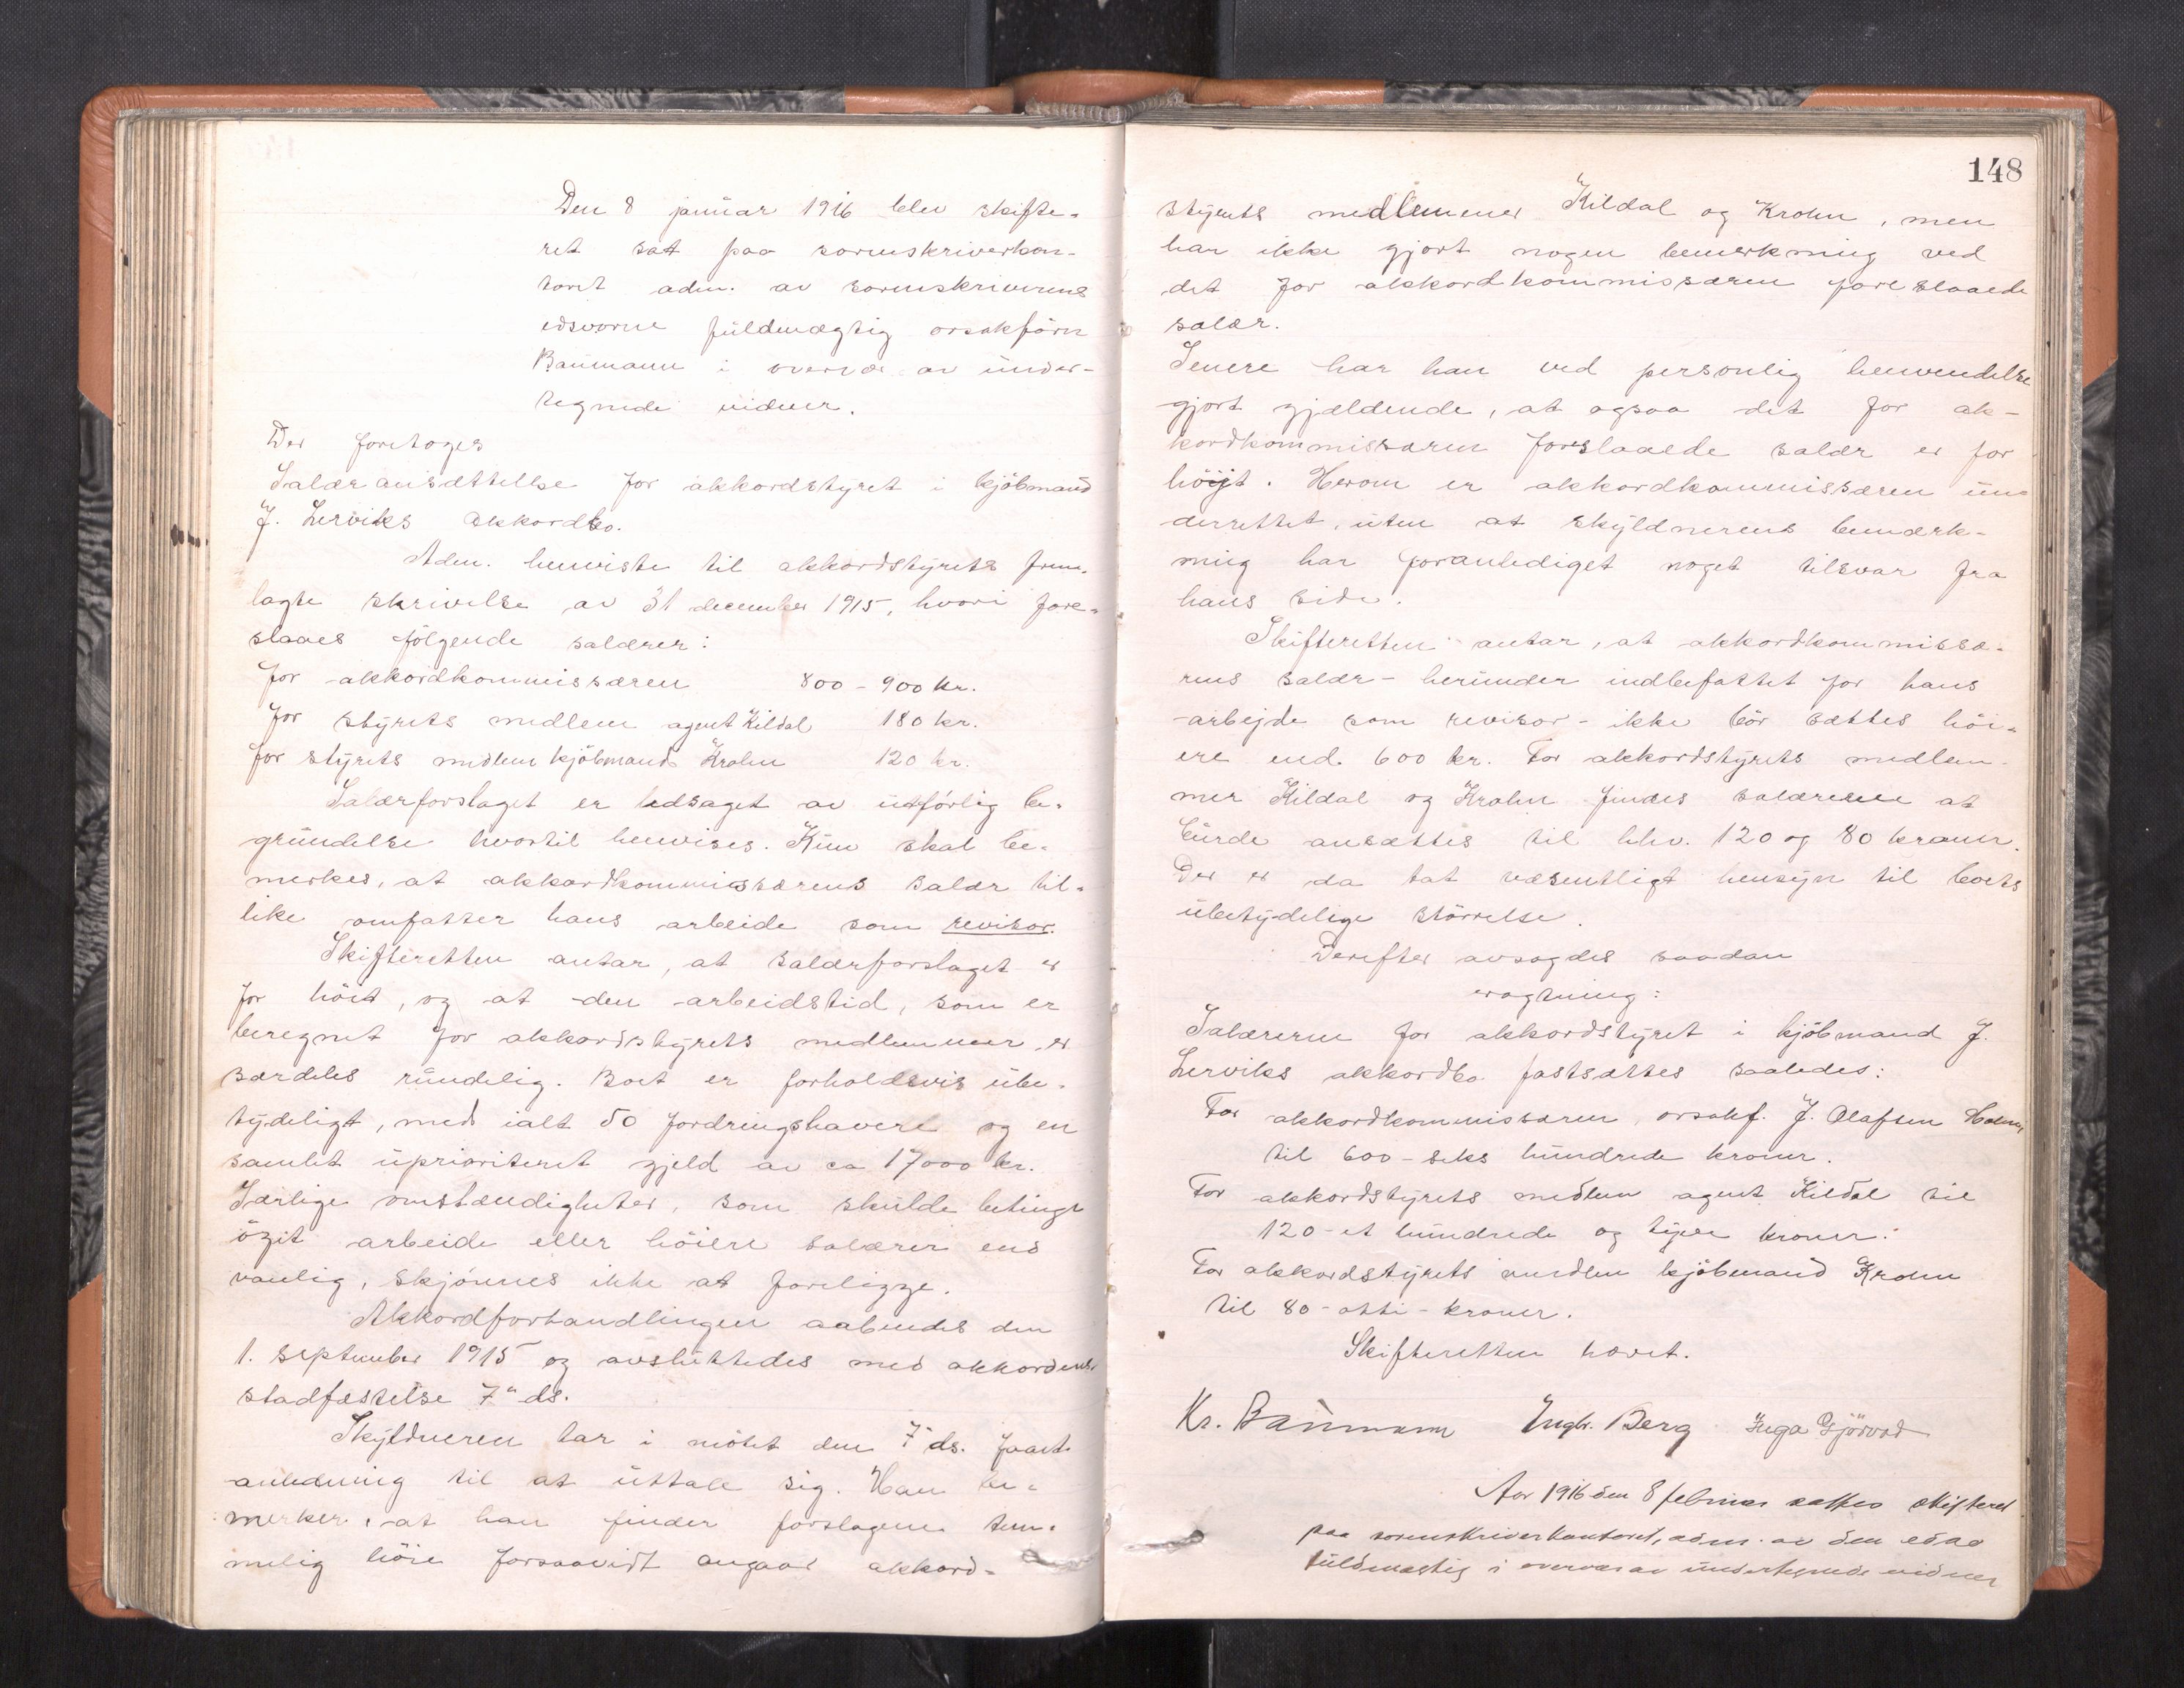 Den 8 januar 1916 blev skifte-
ret sat paa sorenskriverkon-
toret adm. av sorenskriverens
edsvorne fuldmægtig orsakförer
Baumann i overvær av under-
tegnede vidner.
Der foretoges
Salær ansættelse for akkordstyret i kjöbmand
J. Lerviks akkordbo.
Adm. henviste til akkordstyrets frem-
lagte skrivelse av 31 december 1915, hvori fore-
slaaes fölgende salærer:
for akkordkommissæren 800 - 900 kr.
for styrets medlem agent Kildal 180 kr.
for styrets medlem kjöbmand Krohn 120 kr.
Salærforslaget er ledsaget av utförlig be-
grundelse hvortil henvises. Kun skal be-
merkes, at akkordkommissærens salær til-
like omfatter hans arbeide som revisor.
Skifteretten antar, at salærforslaget er
for höit, og at den arbeidstid, som er
beregnet for akkordstyrets medlemmer, er
særdeles rundelig. Boet er forholdsvis ube-
tydeligt, med ialt 50 fordringshavere og en
samlet uprioritert gjeld av ca 17000 kr.
Særlige omstændigheter, som skulde betinge
öget arbeide eller höiere salærer end
vanlig, skjönnes ikke at foreligge.
Akkordforhandlingen aabnedes den
1. september 1915 og avsluttedes med akkordens
stadfæstelse 7" ds.
Skyldneren har i mötet den 7" ds. faaet
anledning til at uttale sig. Han be-
merker, at han finder forslagene tem-
melig höie forsaavidt angaar akkord-
148
styrets medlemmer Kildal og Krohn, men
har ikke gjort nogen bemerkning ved
det for akkordkommissæren foreslaaede
salær.
Senere har han ved personlig henvendelse
gjort gjældende, at ogsaa det for ak-
kordkommissæren foreslaaede salær er for
höyt. Herom er akkordkommissæren un-
derrettet, uten at skyldnerens bemærk-
ning har foranlediget noget tilsvar fra
hans side.
Skifteretten antar, at akkordkommissæ-
rens salær - herunder indbefattet for hans
arbejde som revisor - ikke bör sættes höi-
ere end 600 kr. For akkordstyrets medlem-
mer Kildal og Krohn findes salærerne at
burde ansættes til hhv. 120 og 80 kroner.
Der er da tat væsentligt hensyn til boets
ubetydelige störrelse.
Derefter avsagdes saadan
eragtning:
Salærerne for akkordstyret i kjöbmand J.
Lerviks akkordbo fastsættes saaledes:
For akkordkommissæren, orsakf. J. Olafsen Holm
til 600 - seks hundrede kroner.
For akkordstyrets medlem agent Kildal til
120 - et hundrede og tyve kroner.
For akkordstyrets medlem kjöbmand Krohn
til 80 - otti - kroner.
Skifteretten hævet.
Kr. Baumann Engbr. Berg Inga Gjörvad
Aar 1916 den 8 februar sattes skifteret
paa sorenskriverkontoret, adm. av den edsv
fuldmægtig i overvær av undertegnede vidner